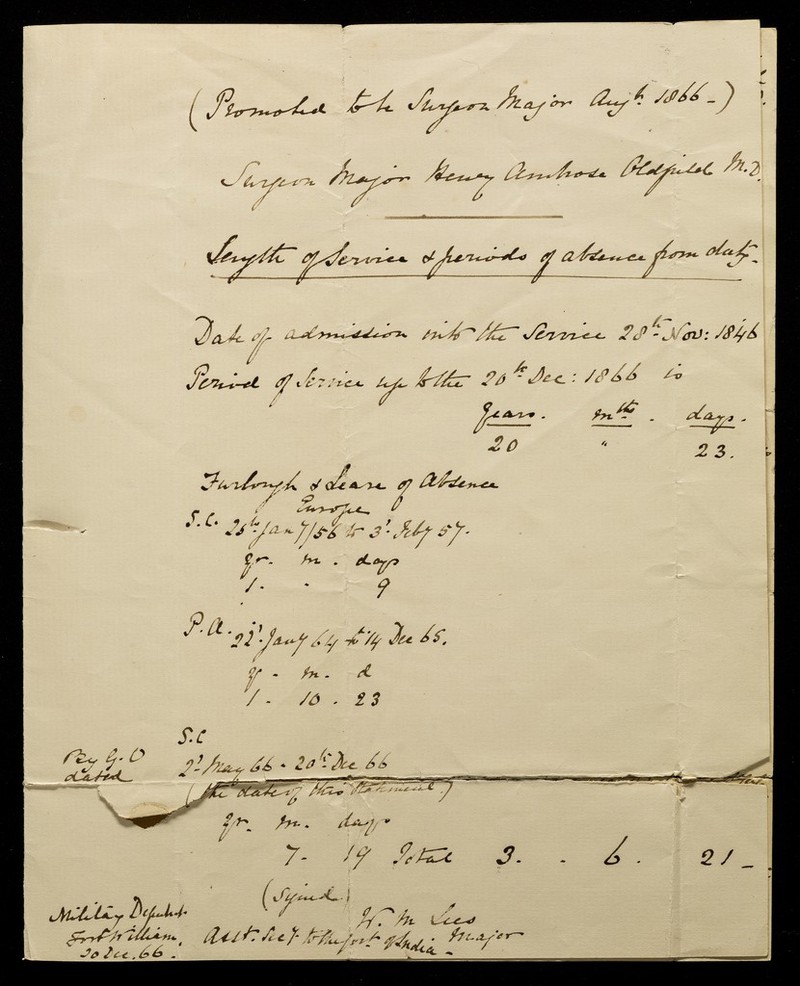 (Promoted to be Surgeon Major Augt. 1866 -)
Surgeon Major Henry Ambrose Oldfield M.D.
Length of Service & periods of absence from duty -
Date of admission into the Service 28th Nov: 1846
Period of Service up to the 20th Dec: 1866 is
Years. mths. days.
20 " 23.
Furlough & Leave of Absence
Europe
S.C. 25th Jany/56 to 3d. Feby 57.
yr. m. days
1. . 9
P.A. 22d. Jany 64 to 14 Dec 65.
y - m - d
1 - 10 - 23
S.C
By G.O 2d. May 66 - 20th Dec 66
dated
(the date of this statement.)
yr. m. days
7 - 19 Total 3. - 6. 21 -
(Signed)
Military Departt. W. M Lees Major
Fort William. Asst. Secy. to the Govt. of India -
20 Dec. 66.